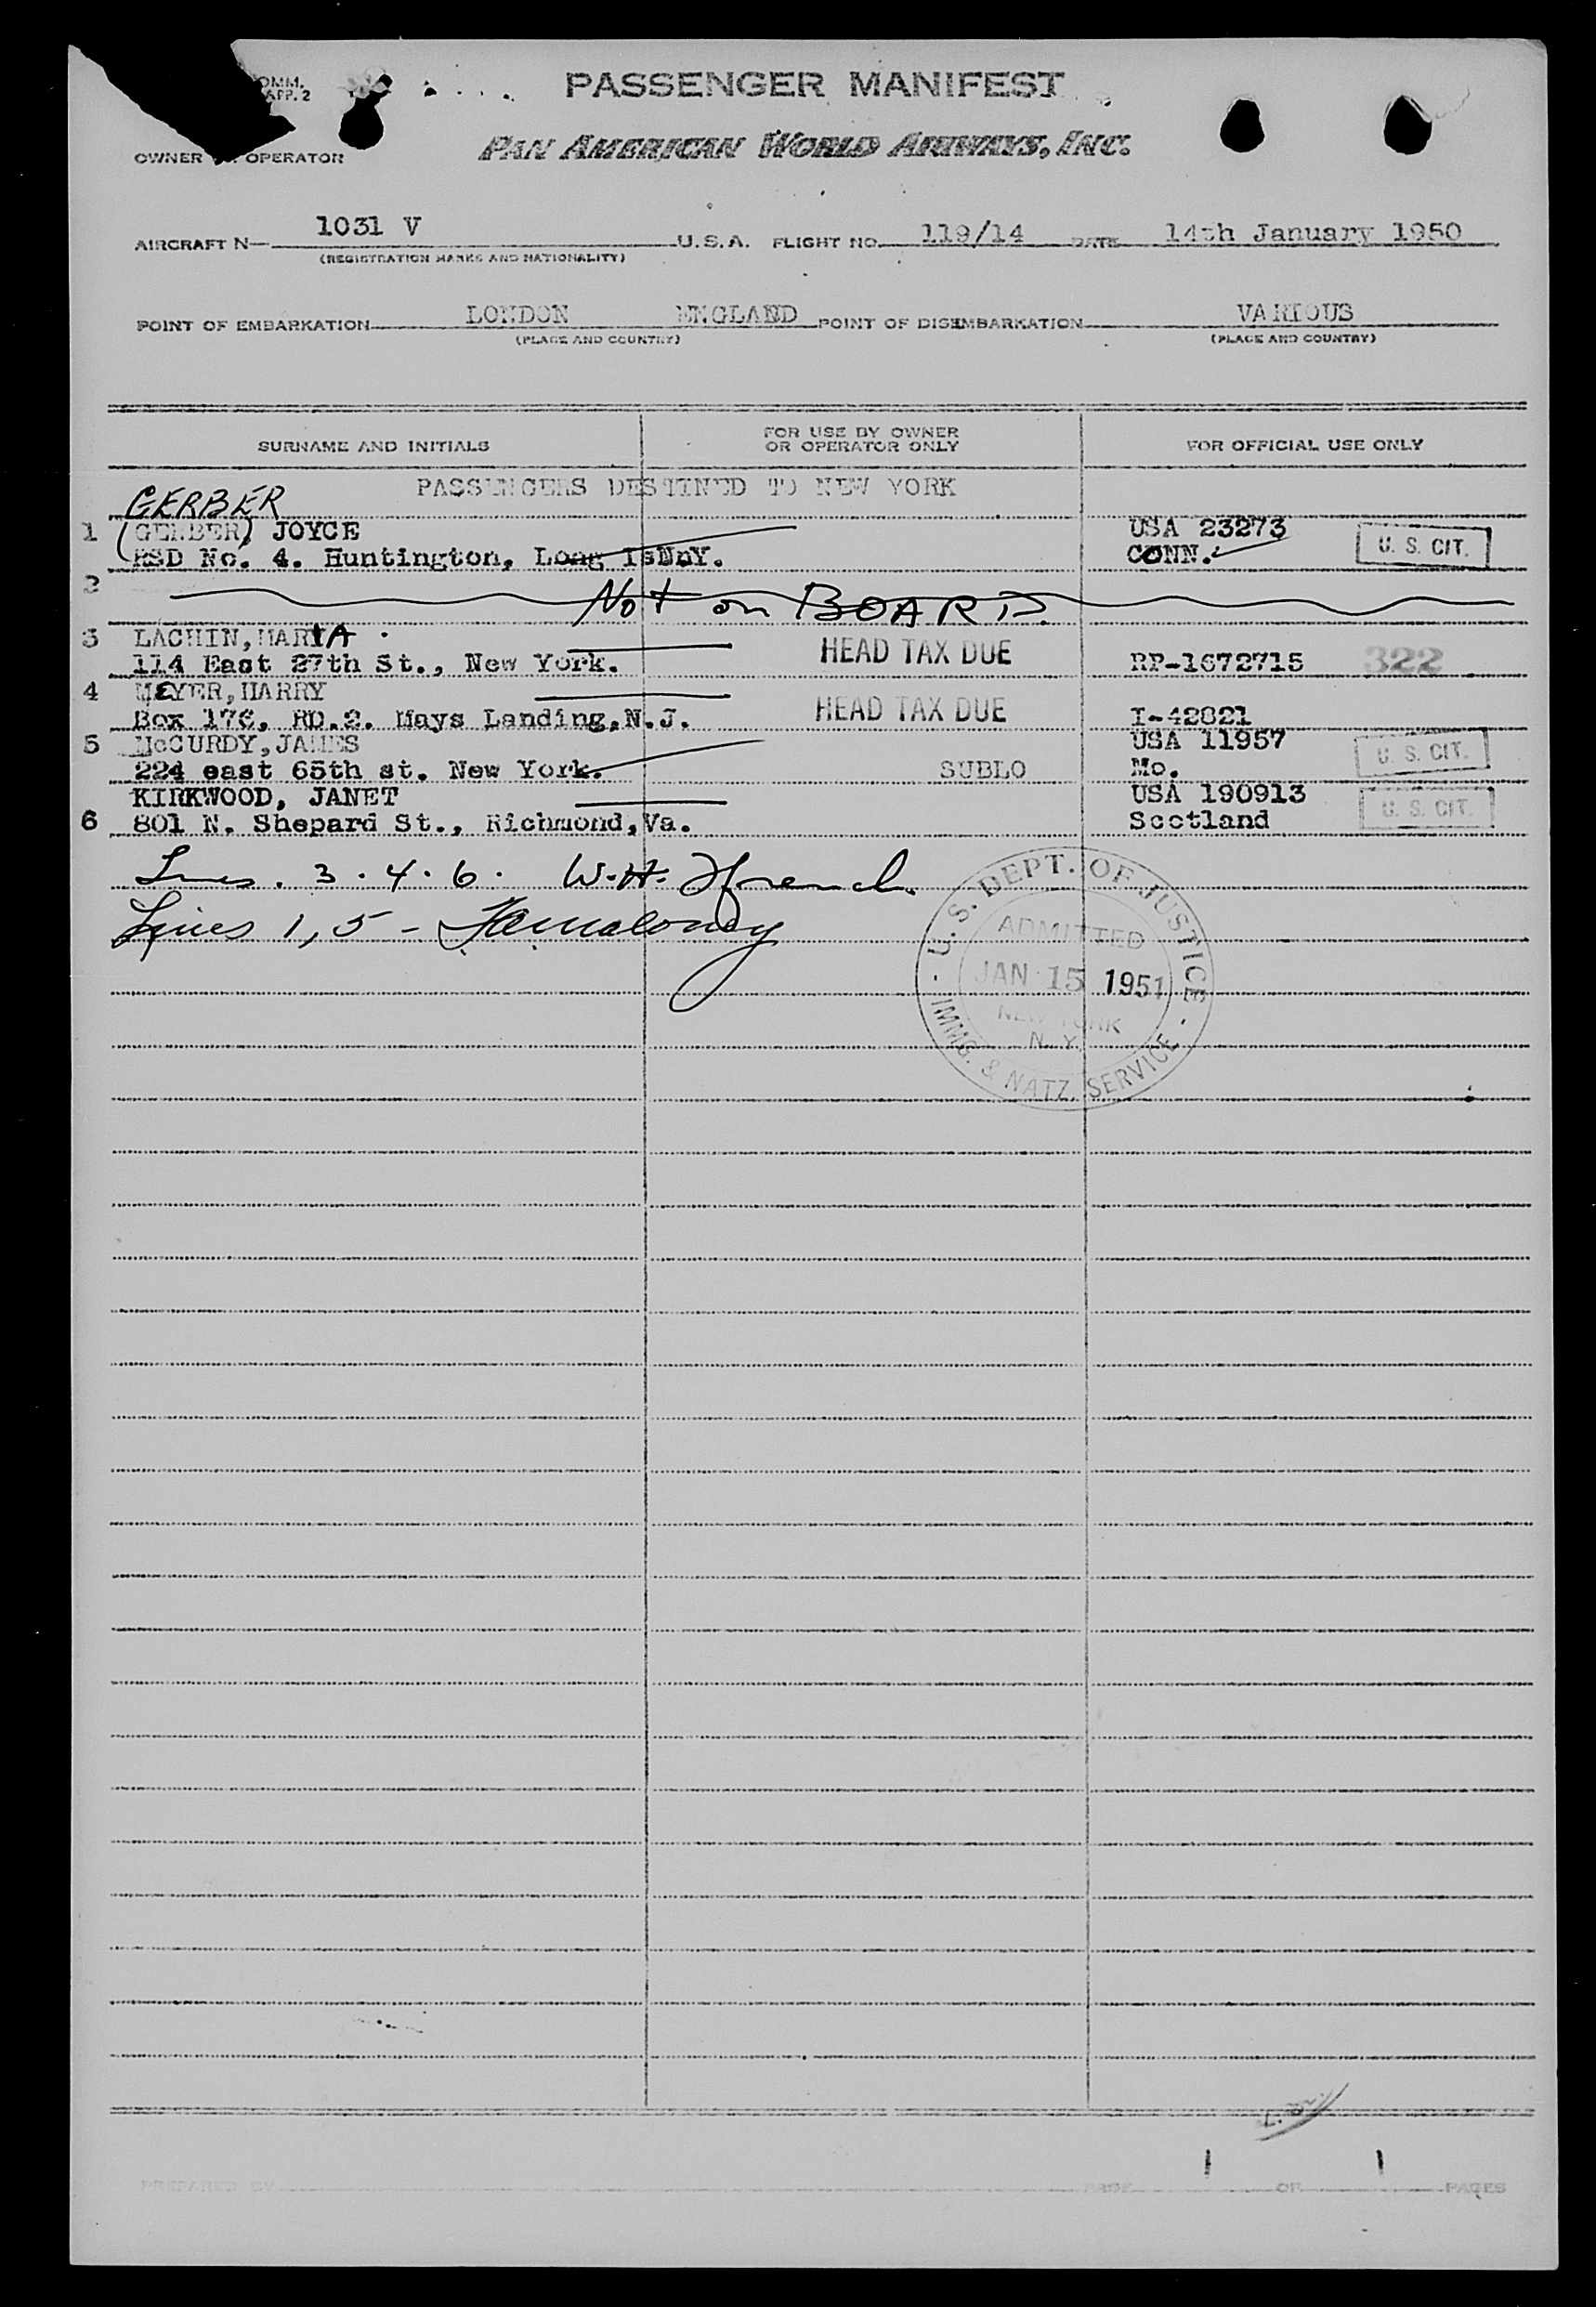 OMM.
APP. 2
PASSENGER MANIFEST
OWNER OPERATOR
PAN AMERICAN WORLD AIRWAYS, INC.
AIRCRAFT N— 1031 V U.S.A. FLIGHT NO. 119/14 DATE 14th January 1950
(REGISTRATION MARKS AND NATIONALITY)
POINT OF EMBARKATION LONDON ENGLAND POINT OF DISEMBARKATION VARIOUS
(PLACE AND COUNTRY) (PLACE AND COUNTRY)
SURNAME AND INITIALS FOR USE BY OWNER OR OPERATOR ONLY FOR OFFICIAL USE ONLY
PASSENGERS DESTINED TO NEW YORK
GERBER
1 (GERBER) JOYCE USA 23273 U. S. CIT.
RSD No. 4. Huntington, Long CONN.
2 Not on BOARD.
3 LACHIN, MARIA HEAD TAX DUE
114 East 27th St., New York. RP-1672715 322
4 MEYER, HARRY HEAD TAX DUE
Box 176, RD.2. Mays Landing, N.J. I-42821
5 McCURDY, JAMES USA 11957 U. S. CIT.
224 east 65th st. New York. SUBLO Mo.
KIRKWOOD, JANET USA 190913 U. S. CIT.
6 801 N. Shepard St., Richmond, Va. Scotland
Lines. 3 . 4 . 6 . W. H. French.
Lines 1, 5 -
U. S. DEPT. OF JUSTICE
ADMITTED
JAN 15 1951
NEW YORK
N. Y.
IMMG. & NATZ. SERVICE
PREPARED BY PAGE 1 OF 1 PAGES